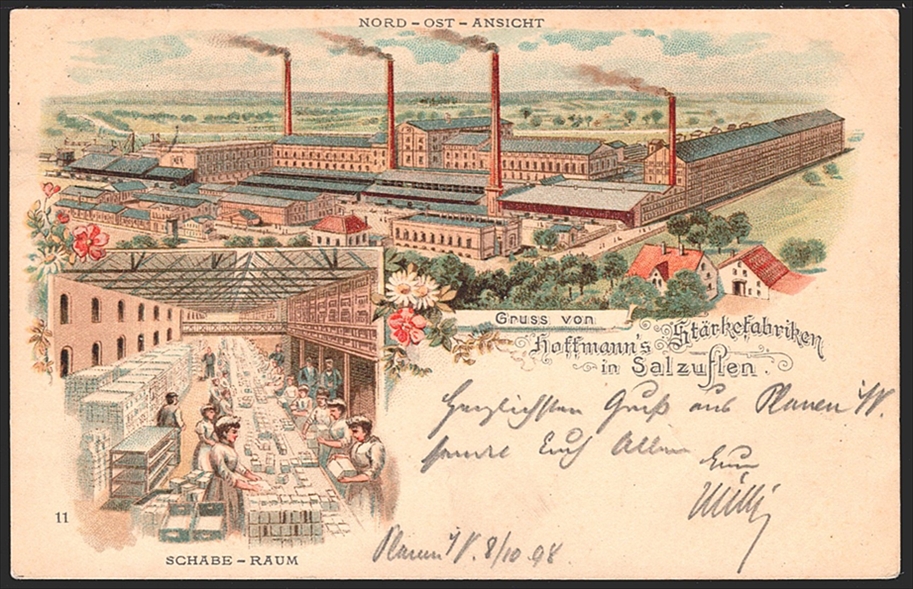 NORD - OST - ANSICHT
Gruss von
Hoffmann's Stärkefabriken
in Salzuflen.
Herzlichsten Gruß aus Plauen i/V.
Euch Allen Eure
Willi
11
SCHABE - RAUM
Plauen i/V. 8/10.98